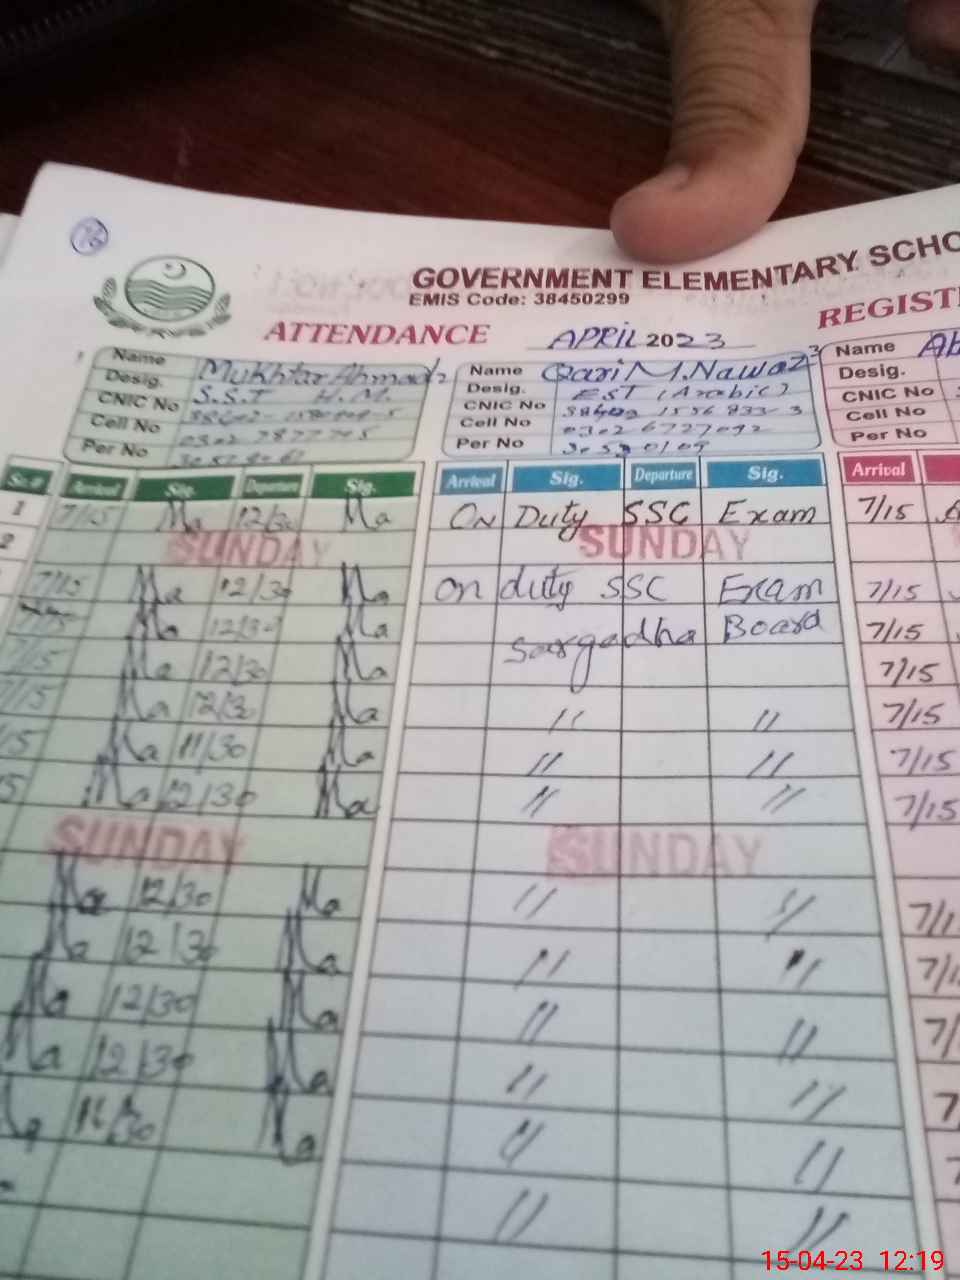 76
GOVERNMENT ELEMENTARY SCHO
EMIS Code: 38450299
ATTENDANCE APRIL 2023 REGIST
1 Name Mukhtar Ahmad 2 Name Qari M. Nawaz 3 Name Ab
Desig. S.S.T H.M. Desig. EST (Arabic) Desig.
CNIC No CNIC No CNIC No
Cell No Cell No 0302 6727092 Cell No
Per No Per No Per No
Sr.# Arrival Sig. Departure Sig. Arrival Sig. Departure Sig. Arrival
1 7/15 Ma 12/30 Ma On Duty SSC Exam 7/15
2 SUNDAY SUNDAY
7/15 Ma 12/30 Ma on duty SSC Exam 7/15
7/15 Ma 12/30 Ma Sargadha Board 7/15
7/15 Ma 12/30 Ma 7/15
7/15 Ma 12/30 Ma // // 7/15
/15 Ma 11/30 Ma // // 7/15
5 Ma 12/30 Ma // // 7/15
SUNDAY SUNDAY
Ma 12/30 Ma // // 7/1
Ma 12/30 Ma // // 7/1
Ma 12/30 Ma // // 7/
Ma 12/30 Ma // // 7
Ma 11/30 Ma // // 7
// //
15-04-23 12:19